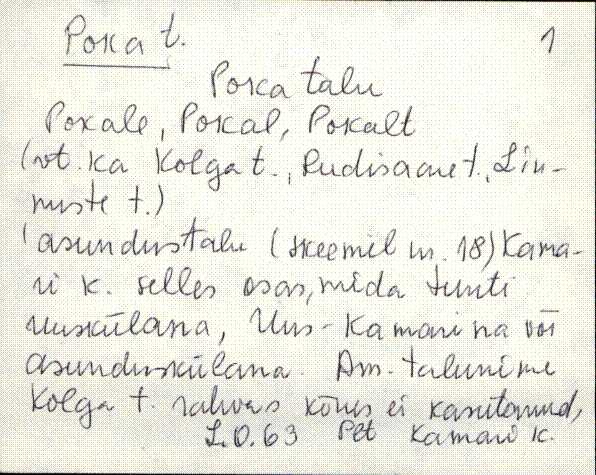 Poka t. 1
Poka talu
Pokale, Pokal, Pokalt
(vt. ka Kolga t., Rudisaare t., Lin-
nuste t.)
asundustalu (skeemil nr. 18) Kama-
ri k. selles osas, mida tunti
uuskülana, Uus-Kamarina või
asunduskülana. Am. talunime
Kolga t. rahvas kõnes ei kasutanud,
L.O. 63 Plt Kamari k.